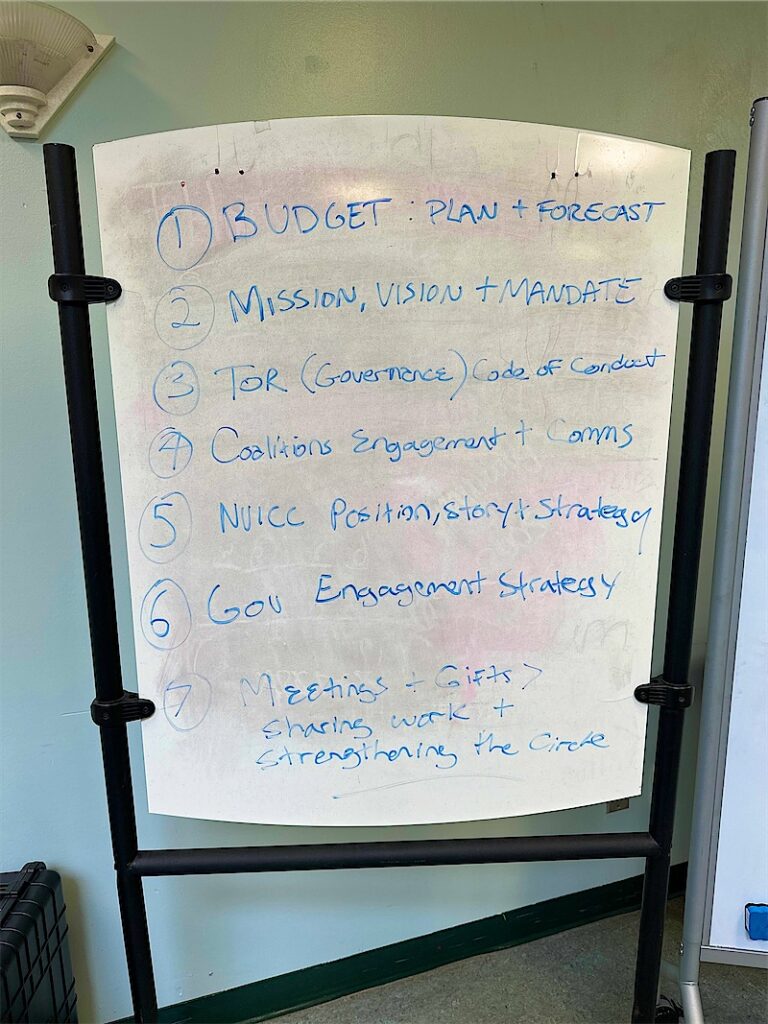 1 BUDGET : PLAN + FORECAST
2 MISSION, VISION + MANDATE
3 TOR (Governance) Code of Conduct
4 Coalitions Engagement + Comms
5 NUICC Position, Story + Strategy
6 Gov Engagement Strategy
7 Meetings + Gifts >
Sharing work +
strengthening the Circle